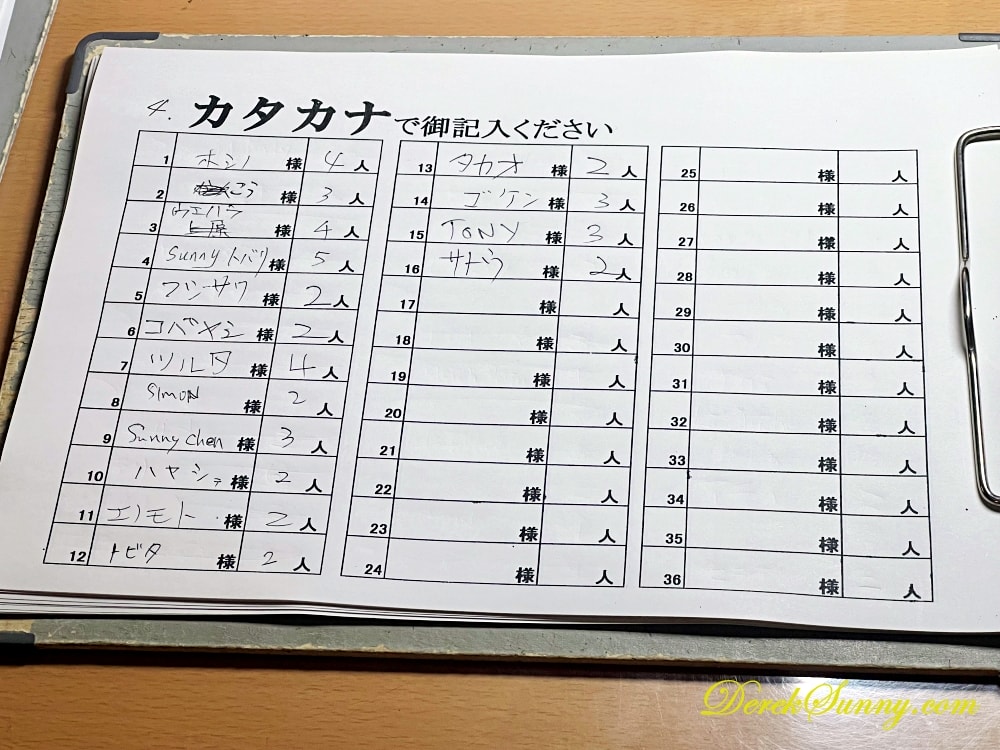 4. カタカナで御記入ください
1 ホシノ 様 4 人
2 こう 様 3 人
3 ウエハラ 様 4 人
4 Sunny トバリ 様 5 人
5 フジサワ 様 2 人
6 コバヤシ 様 2 人
7 ツルタ 様 4 人
8 SIMON 様 2 人
9 Sunny chen 様 3 人
10 ハヤシ 様 2 人
11 エノモト 様 2 人
12 トビタ 様 2 人
13 タカオ 様 2 人
14 様 3 人
15 TONY 様 3 人
16 サトウ 様 2 人
17 様 人
18 様 人
19 様 人
20 様 人
21 様 人
22 様 人
23 様 人
24 様 人
25 様 人
26 様 人
27 様 人
28 様 人
29 様 人
30 様 人
31 様 人
32 様 人
33 様 人
34 様 人
35 様 人
36 様 人
DerekSunny.com